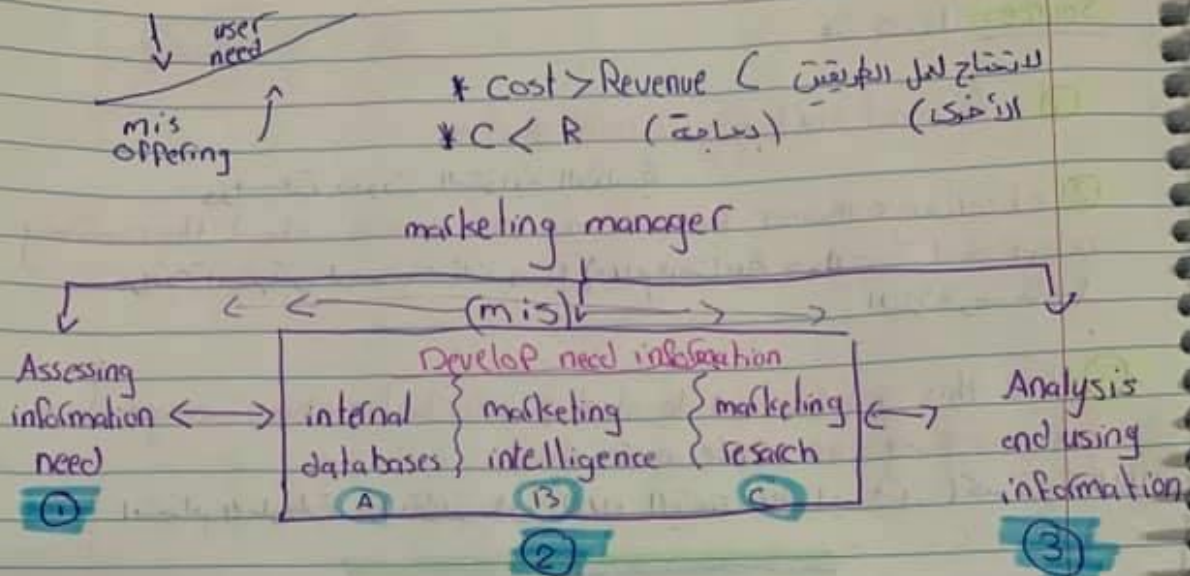 user
need
mis
offering
* Cost > Revenue ( لا تحتاج لحل الطريقتين
الأخرى)
* C < R (بحاجة)
marketing manager
(mis)
Assessing
information
need
①
Develop need information
internal
databases
A
marketing
intelligence
B
marketing
resarch
C
②
Analysis
end using
information
③